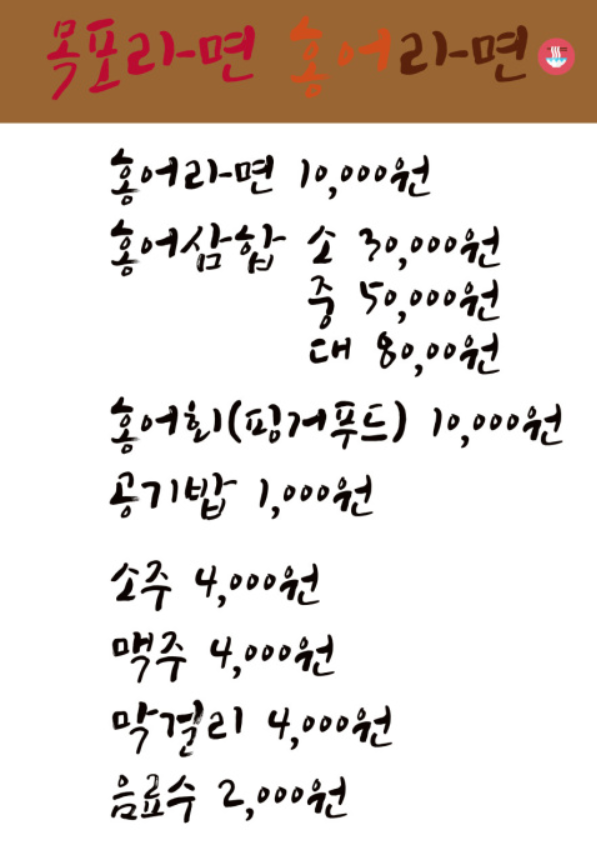 목포라면 홍어라면
홍어라면 10,000원
홍어삼합 소 30,000원
중 50,000원
대 80,00원
홍어회(핑거푸드) 10,000원
공기밥 1,000원
소주 4,000원
맥주 4,000원
막걸리 4,000원
음료수 2,000원